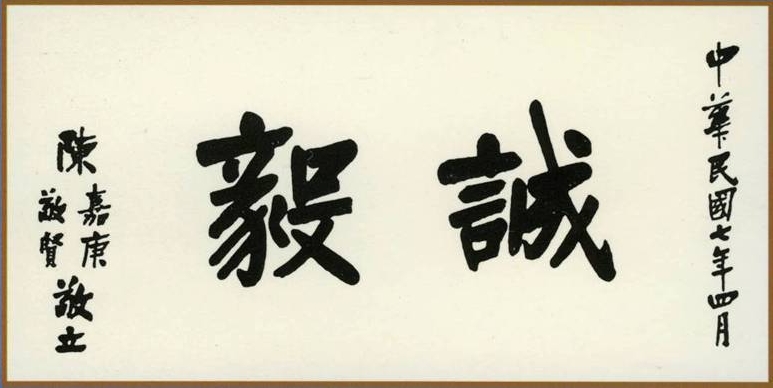 中華民國七年四月
誠毅
陳嘉庚敬賢敬立